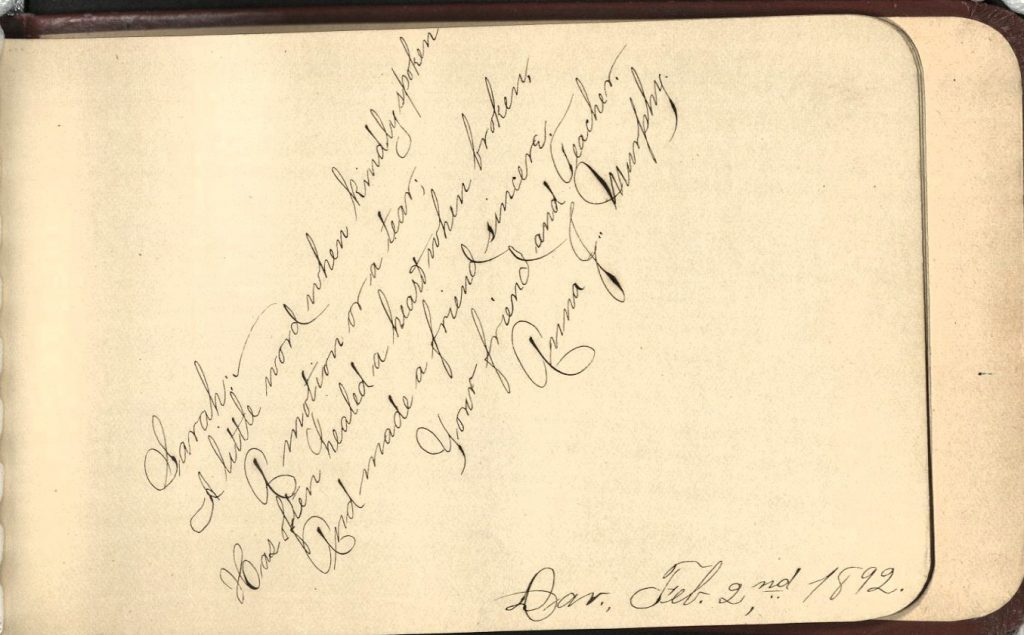 Sarah:-
A little word when kindly spoken
A motion or a tear;
Has often healed a heart when broken,
And made a friend sincere.
Your friend and Teacher.
Anna J. Murphy.
Dav., Feb. 2,nd 1892.